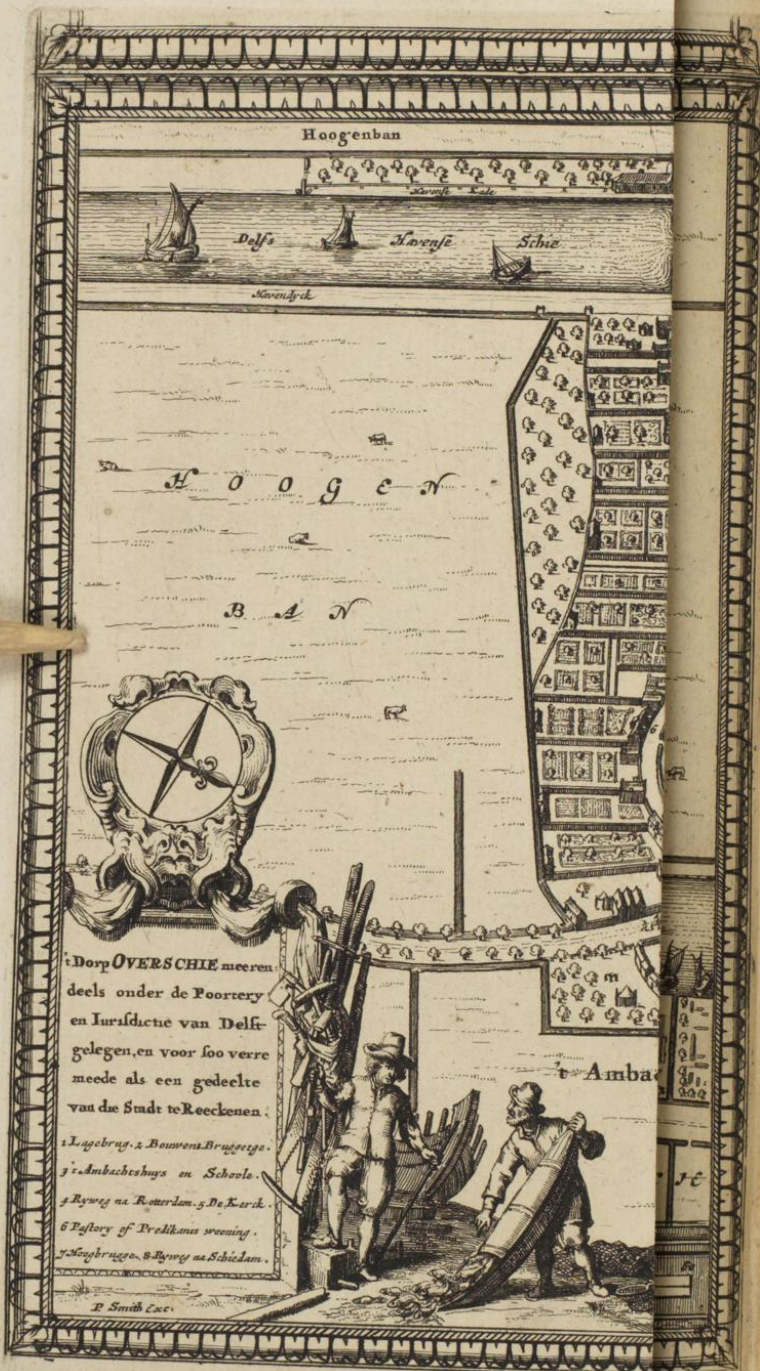 Hoogenban
Delfs Havense Schie
Havendyck
HOOGEN
BAN
't Dorp OVERSCHIE meeren
deels onder de Poortery
en Iurisdictie van Delft
gelegen, en voor soo verre
meede als een gedeelte
van die Stadt te Reeckenen.
1 Lagebrug. 2 Bouwens Bruggetge.
3 't Ambachtshuys en Schoole.
4 Ryweg na Rotterdam. 5 De Kerck.
6 Pastory of Predikants wooning.
7 Hoogbrugge. 8 Ryweg na Schiedam.
P. Smith Exc.
m
't Amba